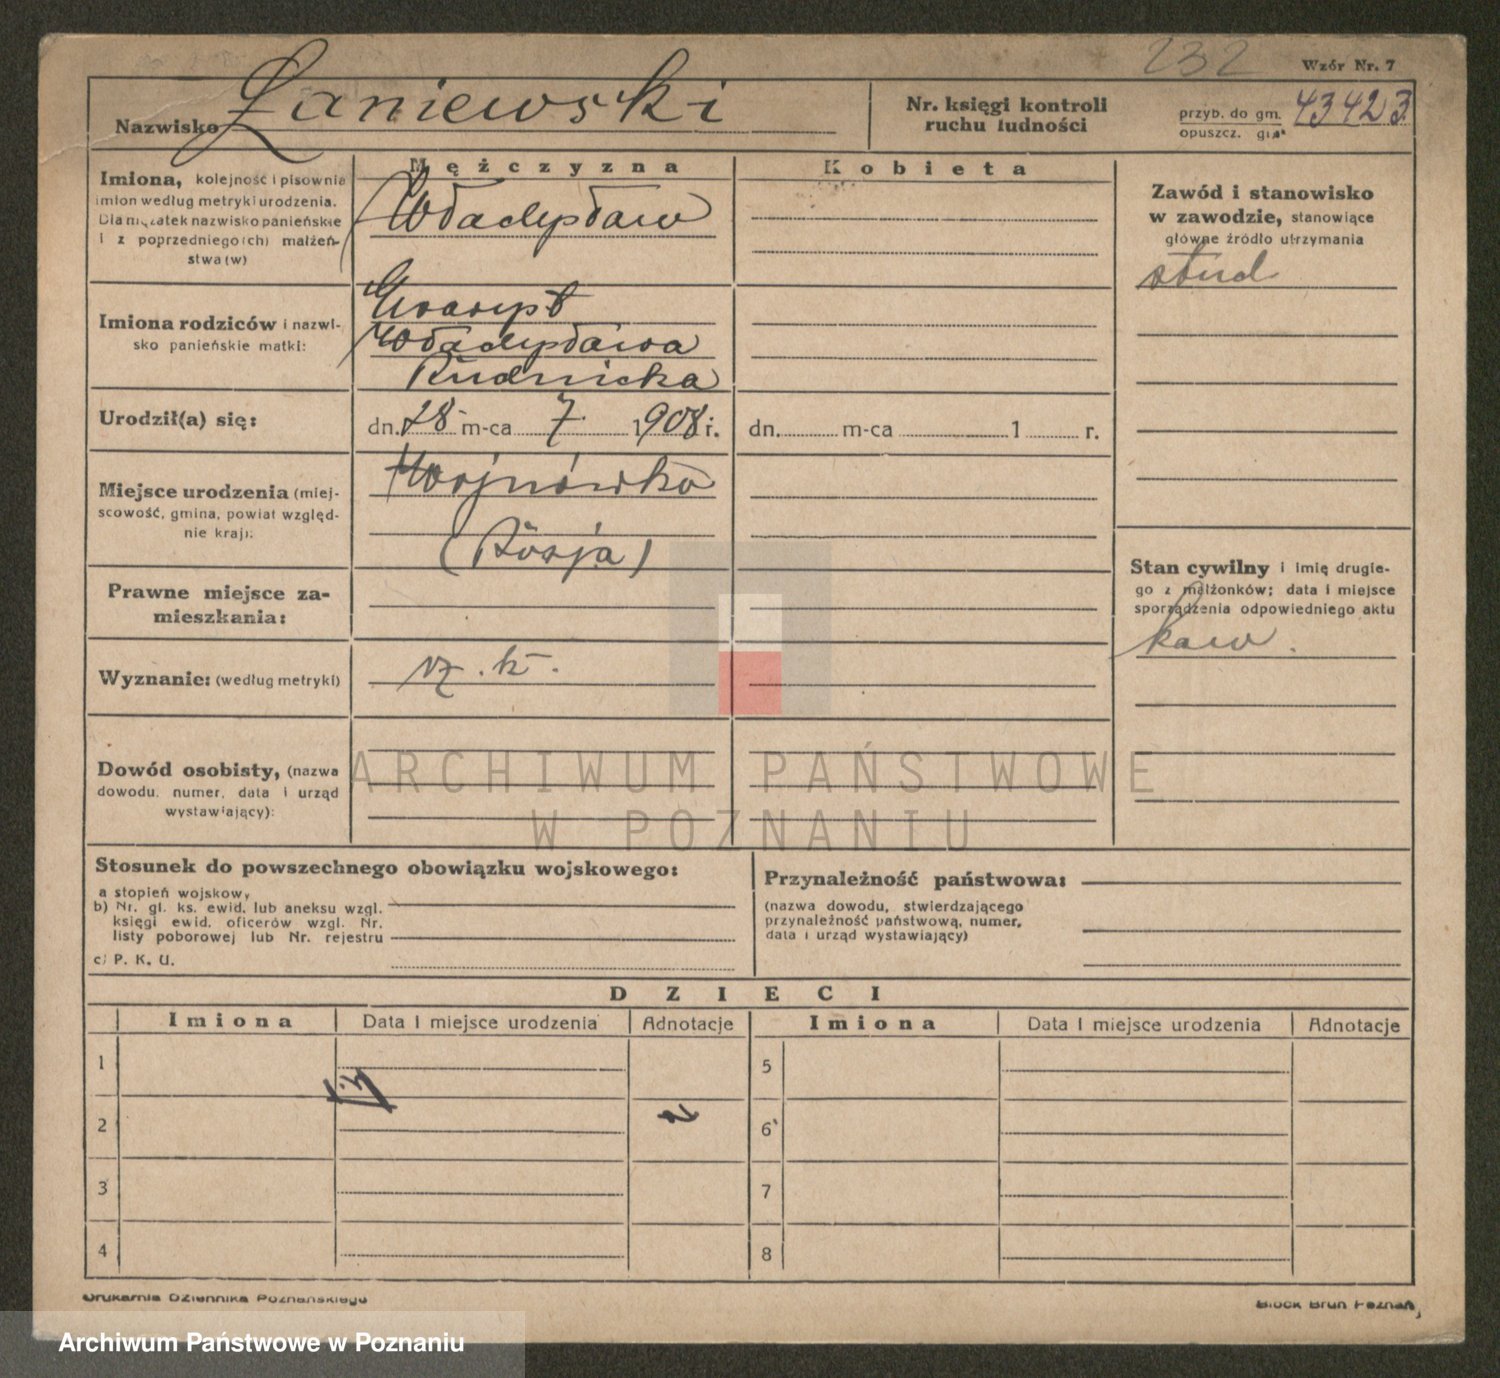 232
Wzór Nr. 7
Nazwisko Łaniewski
Nr. księgi kontroli
ruchu ludności
przyb. do gm. 43423
opuszcz. gm.
Mężczyzna
Kobieta
Imiona, kolejność i pisownia
imion według metryki urodzenia.
Dla mężatek nazwisko panieńskie
i z poprzedniego(ch) małżeń-
stwa(w)
Władysław
Zawód i stanowisko
w zawodzie, stanowiące
główne źródło utrzymania
stud
Imiona rodziców i nazwi-
sko panieńskie matki:
Władysława
Rudnicka
Urodził(a) się:
dn. 28 m-ca 7 1908 r.
dn. m-ca 1 r.
Miejsce urodzenia (miej-
scowość, gmina, powiat względ-
nie kraj):
Wojnówka
(Rosja)
Stan cywilny i imię drugie-
go z małżonków; data i miejsce
sporządzenia odpowiedniego aktu
kaw.
Prawne miejsce za-
mieszkania:
Wyznanie: (według metryki)
rz. k.
Dowód osobisty, (nazwa
dowodu, numer, data i urząd
wystawiający):
ARCHIWUM PAŃSTWOWE
W POZNANIU
Stosunek do powszechnego obowiązku wojskowego:
a stopień wojskowy
b) Nr. gł. ks. ewid. lub aneksu wzgl.
księgi ewid. oficerów wzgl. Nr.
listy poborowej lub Nr. rejestru
c) P. K. U.
Przynależność państwowa:
(nazwa dowodu, stwierdzającego
przynależność państwową, numer,
data i urząd wystawiający)
DZIECI
Imiona Data i miejsce urodzenia Adnotacje Imiona Data i miejsce urodzenia Adnotacje
1 5
2 6
3 7
4 8
Drukarnia Dziennika Poznańskiego
Block Brun Poznań
Archiwum Państwowe w Poznaniu